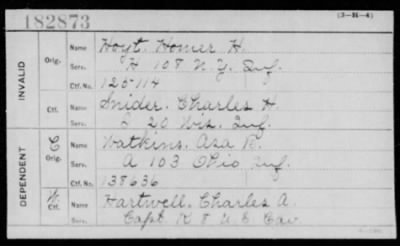 182873
(3-H-4)
INVALID
Orig.
Name Hoyt, Homer H.
Serv. H 108 N.Y. Inf.
Ctf. No. 125114
Ctf.
Name Snider, Charles H.
Serv. I 20 Wis. Inf.
DEPENDENT
C
Orig.
Name Watkins, Asa B.
Serv. A 103 Ohio Inf.
Ctf. No. 138636
W
Ctf.
Name Hartwell, Charles A.
Serv. Capt K 8 U.S. Cav